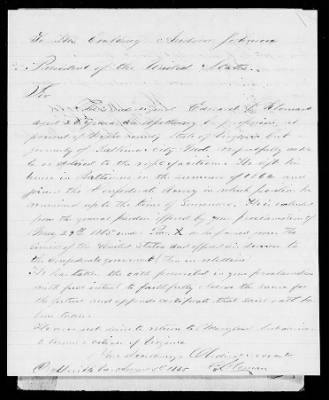 To His Excellency Andrew Johnson
President of the United States.
Sir
The undersigned Edward L.
aged 28 years, an Apothecary by profession, at
present of County State of Virginia but
formerly of Baltimore City Md. respectfully asks
to be restored to the rights of citizens. He left his
home in Baltimore in the summer of 1862 and
joined the Confederate Army in which position he
remained up to the time of Surrender. He is excluded
from the general pardon offered by your proclamation of
May 29th 1865 under Par. X as he passed over the
limits of the United States and offered his services to
the Confederate government then in rebellion.
He has taken the oath prescribed in your proclamation
with full intent to faithfully observe the same for
the future and appends certificate that said oath has
been taken.
He does not desire to return to Maryland but desires
to become a citizen of Virginia
Your Excellency's Obedient servant
1865